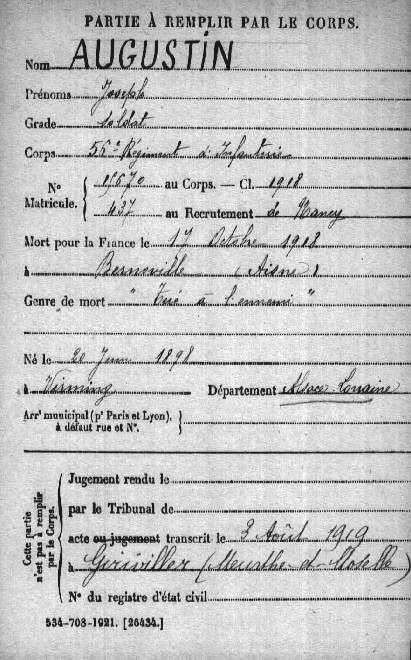 PARTIE À REMPLIR PAR LE CORPS.
Nom AUGUSTIN
Prénoms Joseph
Grade Soldat
Corps 55e Régiment d'Infanterie
N° Matricule. { au Corps. — Cl. 1918
437 au Recrutement de Nancy
Mort pour la France le 17 Octobre 1918
à Berneville (Aisne)
Genre de mort " Tué à l'ennemi "
Né le 20 Juin 1898
à Virming Département Alsace-Lorraine
Arrt municipal (pr Paris et Lyon), à défaut rue et N°. }
Cette partie n'est pas à remplir par le Corps. {
Jugement rendu le
par le Tribunal de
acte ou jugement transcrit le 3 Août 1919
à Giriviller (Meurthe-et-Moselle)
N° du registre d'état civil
534-708-1921. [26434.]